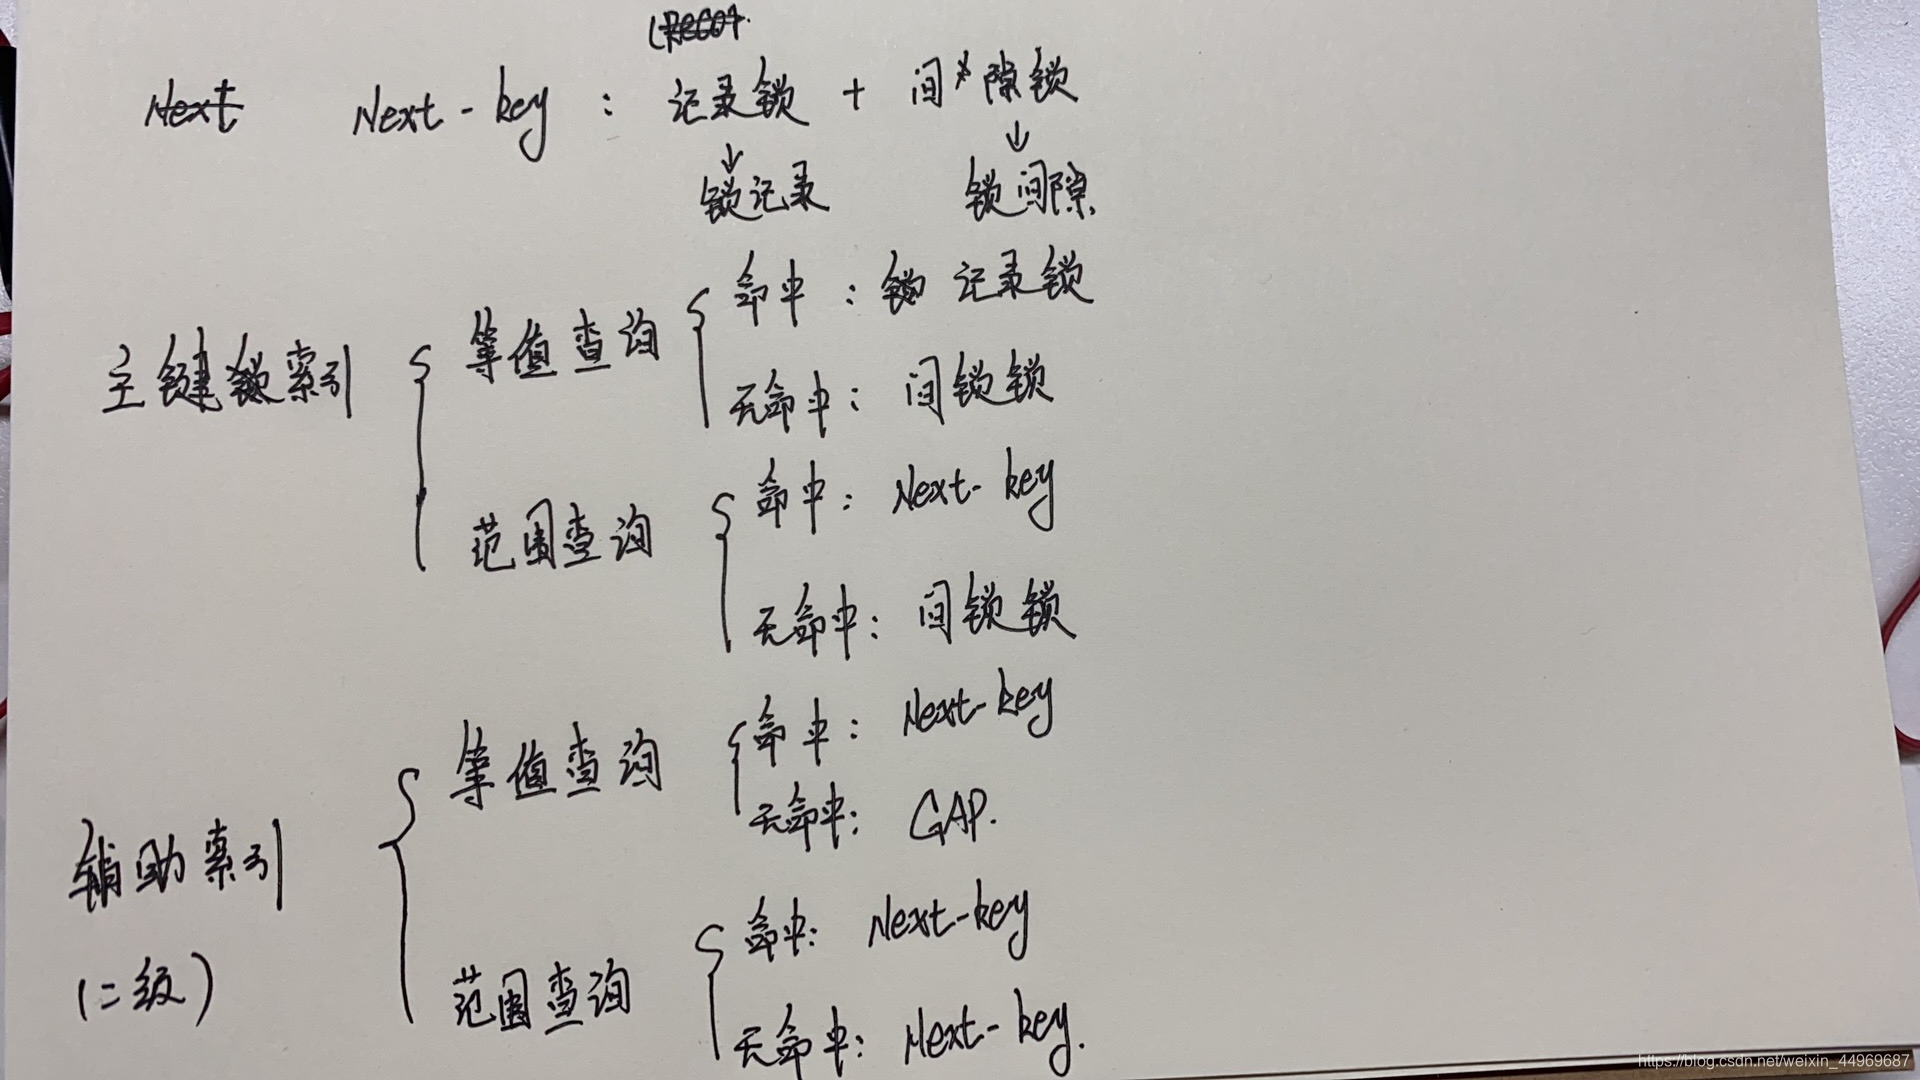 Next Next-key : 记录锁 + 间隙锁
↓ ↓
锁记录 锁间隙
主键索引
等值查询
命中 : 记录锁
无命中 : 间锁锁
范围查询
命中 : Next-key
无命中 : 间锁锁
辅助索引
(二级)
等值查询
命中 : Next-key
无命中 : GAP.
范围查询
命中 : Next-key
无命中 : Next-key.
https://blog.csdn.net/weixin_44969687